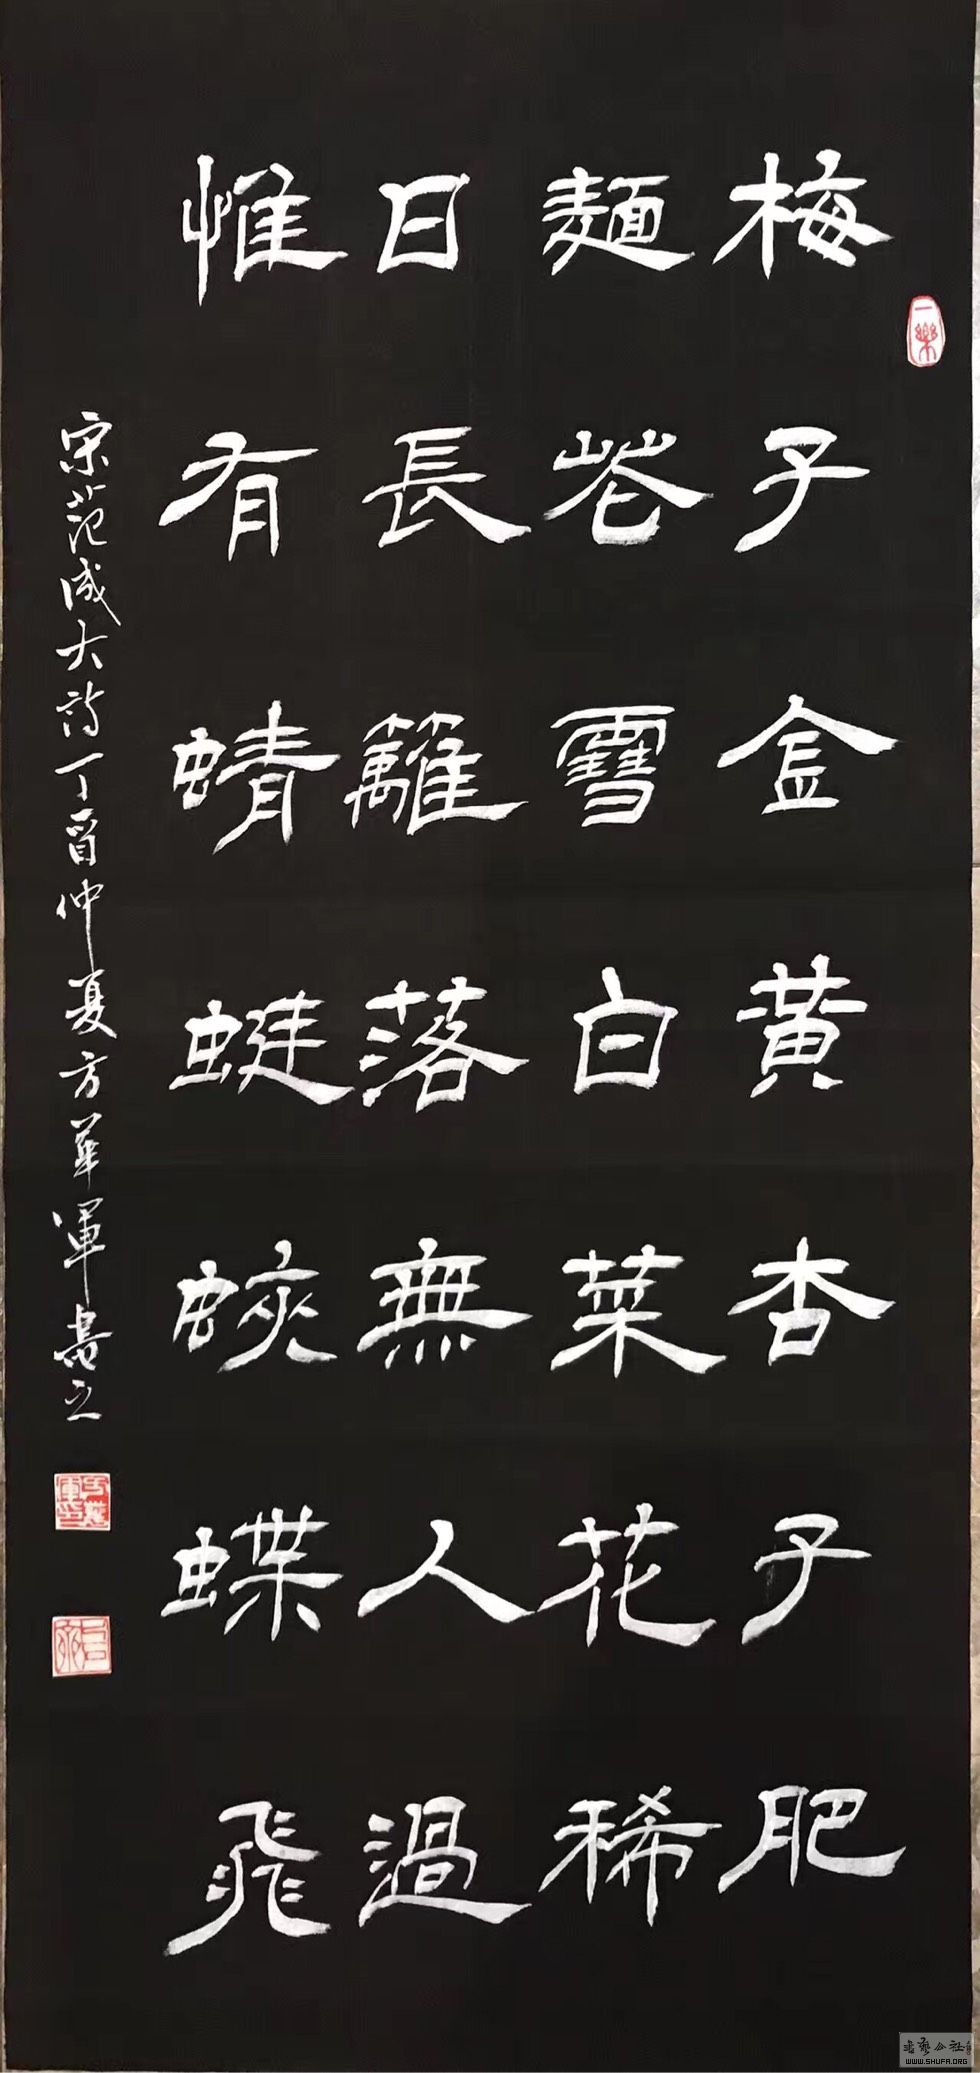 梅子金黄杏子肥
麺花雪白菜花稀
日長籬落無人過
惟有蜻蜓蛺蝶飛
宋范成大詩丁酉仲夏方華軍書之
一樂
WWW.SHUFA.ORG